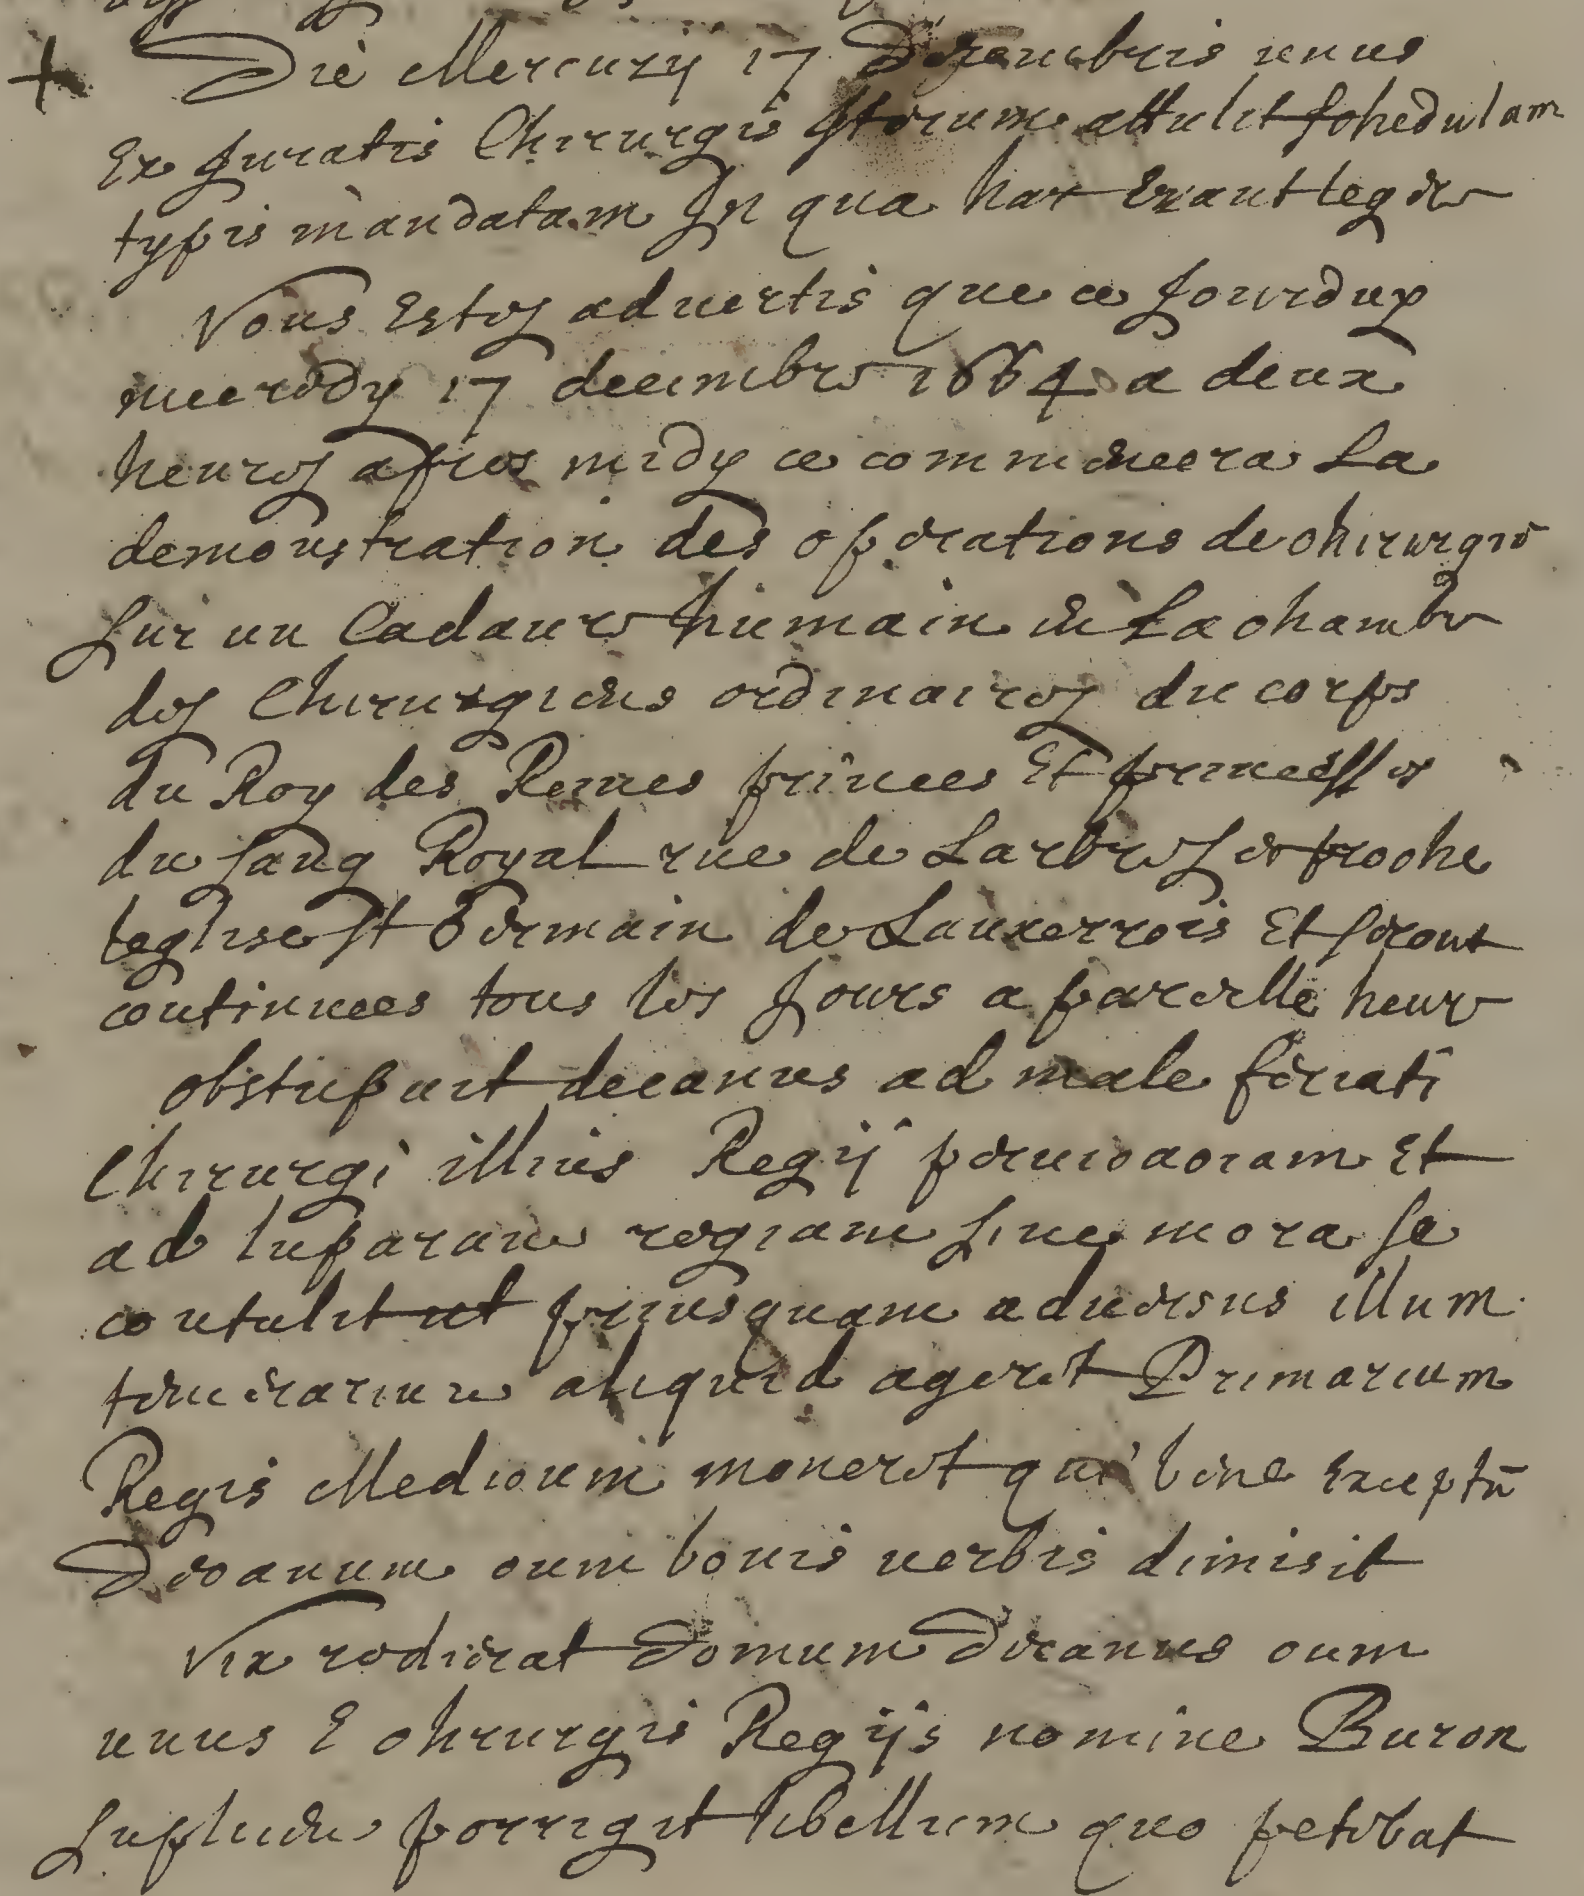 Die Mercurij 17 Decembris unus
Ex Juratis Chirurgis Iterum attulit schedulam
typis mandatam In qua hae Erant legere
Vous Estes advertis que ce Jourduy
mecredy 17 decembre 1664 a deux
heures apres midy ce commencera La
demonstration des operations de chirurgie
Sur un Cadavre humain en La chambre
des Chirurgiens ordinaires du corps
du Roy des Reines princes Et princesses
du sang Royal rue de Larbresec proche
leglise St Germain de Lauxerrois Et seront
continuees tous les Jours a pareille heure
obstupuit decanus ad male feriati
Chirurgi illius Regij pervicaciam Et
ad luparam regiam sine mora se
contulit ut priusquam adversus illum
temerarium aliquid ageret Primarium
Regis Medicum moneret qui bene Exceptū
Decanum cum bonis verbis dimisit
Vix redierat Domum Decanus cum
unus E chirurgis Regijs nomine Buron
supplicem porrigit libellum quo petebat